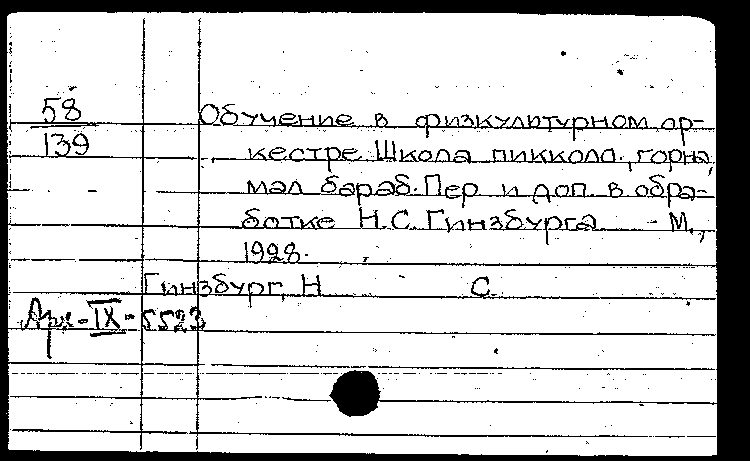 58
139
Обучение в физкультурном ор-
кестре. Школа пиккола, горна,
мал. бараб. Пер. и доп. в обра-
ботке Н.С. Гинзбурга. - М.,
1928.
Гинзбург, Н. С.
Арх-IX-5523